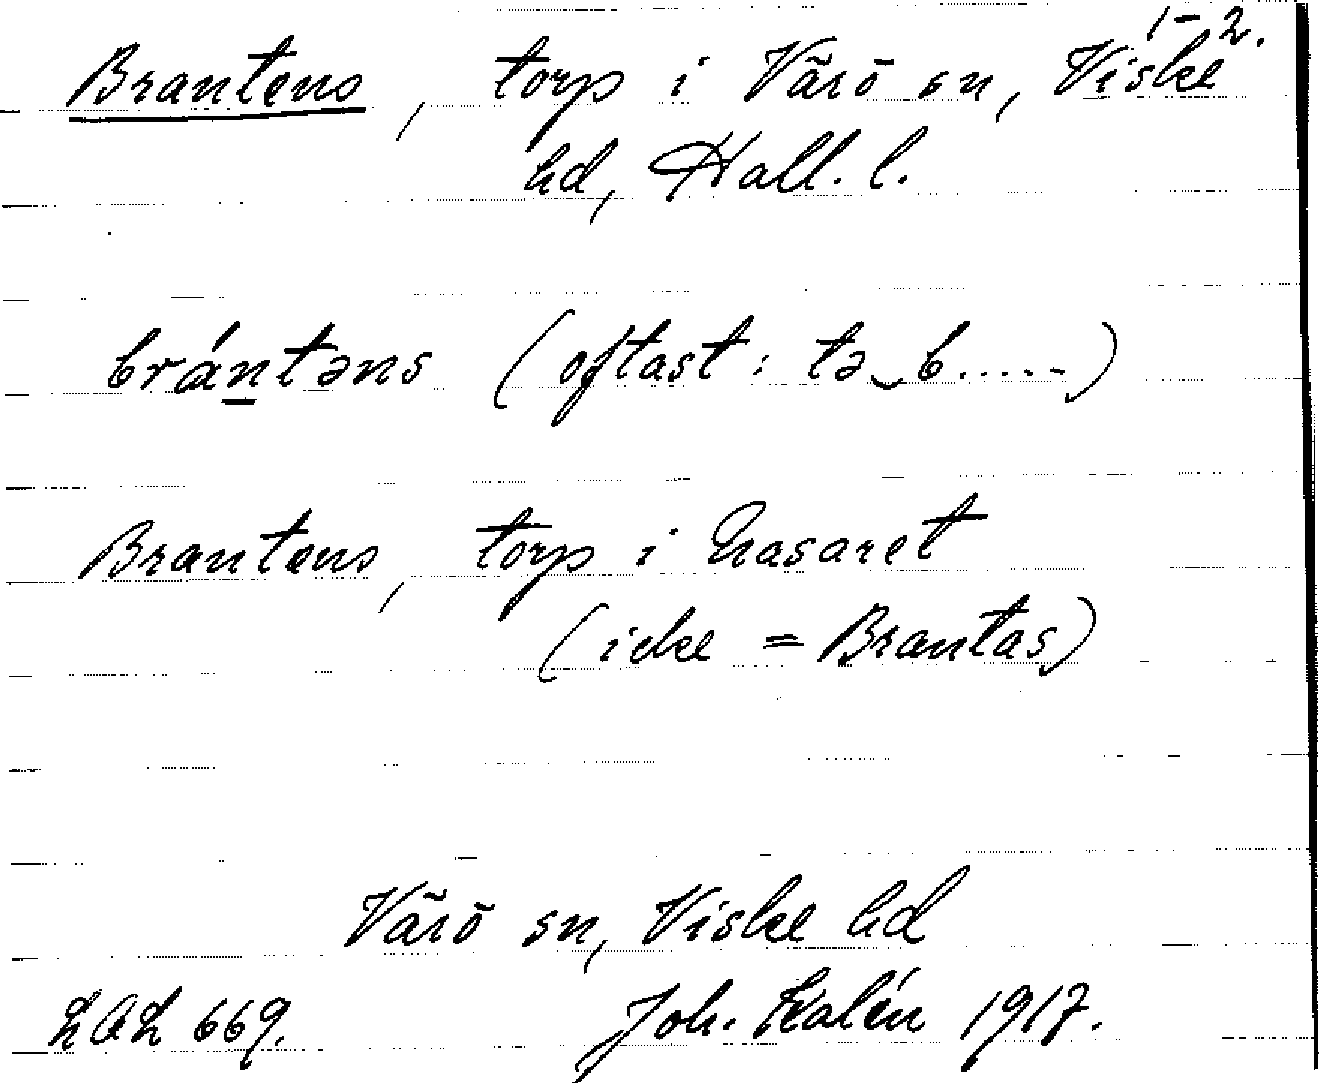 1-2.
Brantens, torp i Värö sn, Viske
hd, Hall. l.
brántəns (oftast: tə‿b.....)
Brantens, torp i Nasaret
(icke = Brantas)
Värö sn, Viske hd
LAL 669. Joh. Kalén 1917.